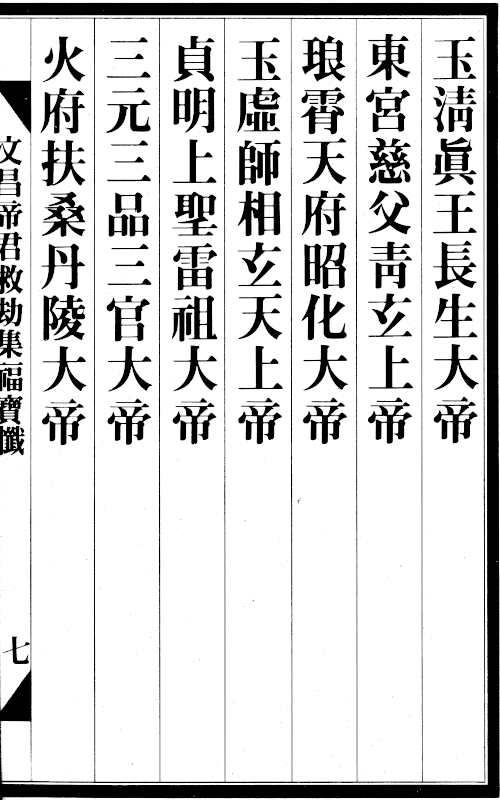 玉淸眞王長生大帝
東宮慈父靑玄上帝
琅霄天府昭化大帝
玉虛師相玄天上帝
貞明上聖雷祖大帝
三元三品三官大帝
火府扶桑丹陵大帝
文昌帝君救劫集福寶懺
七